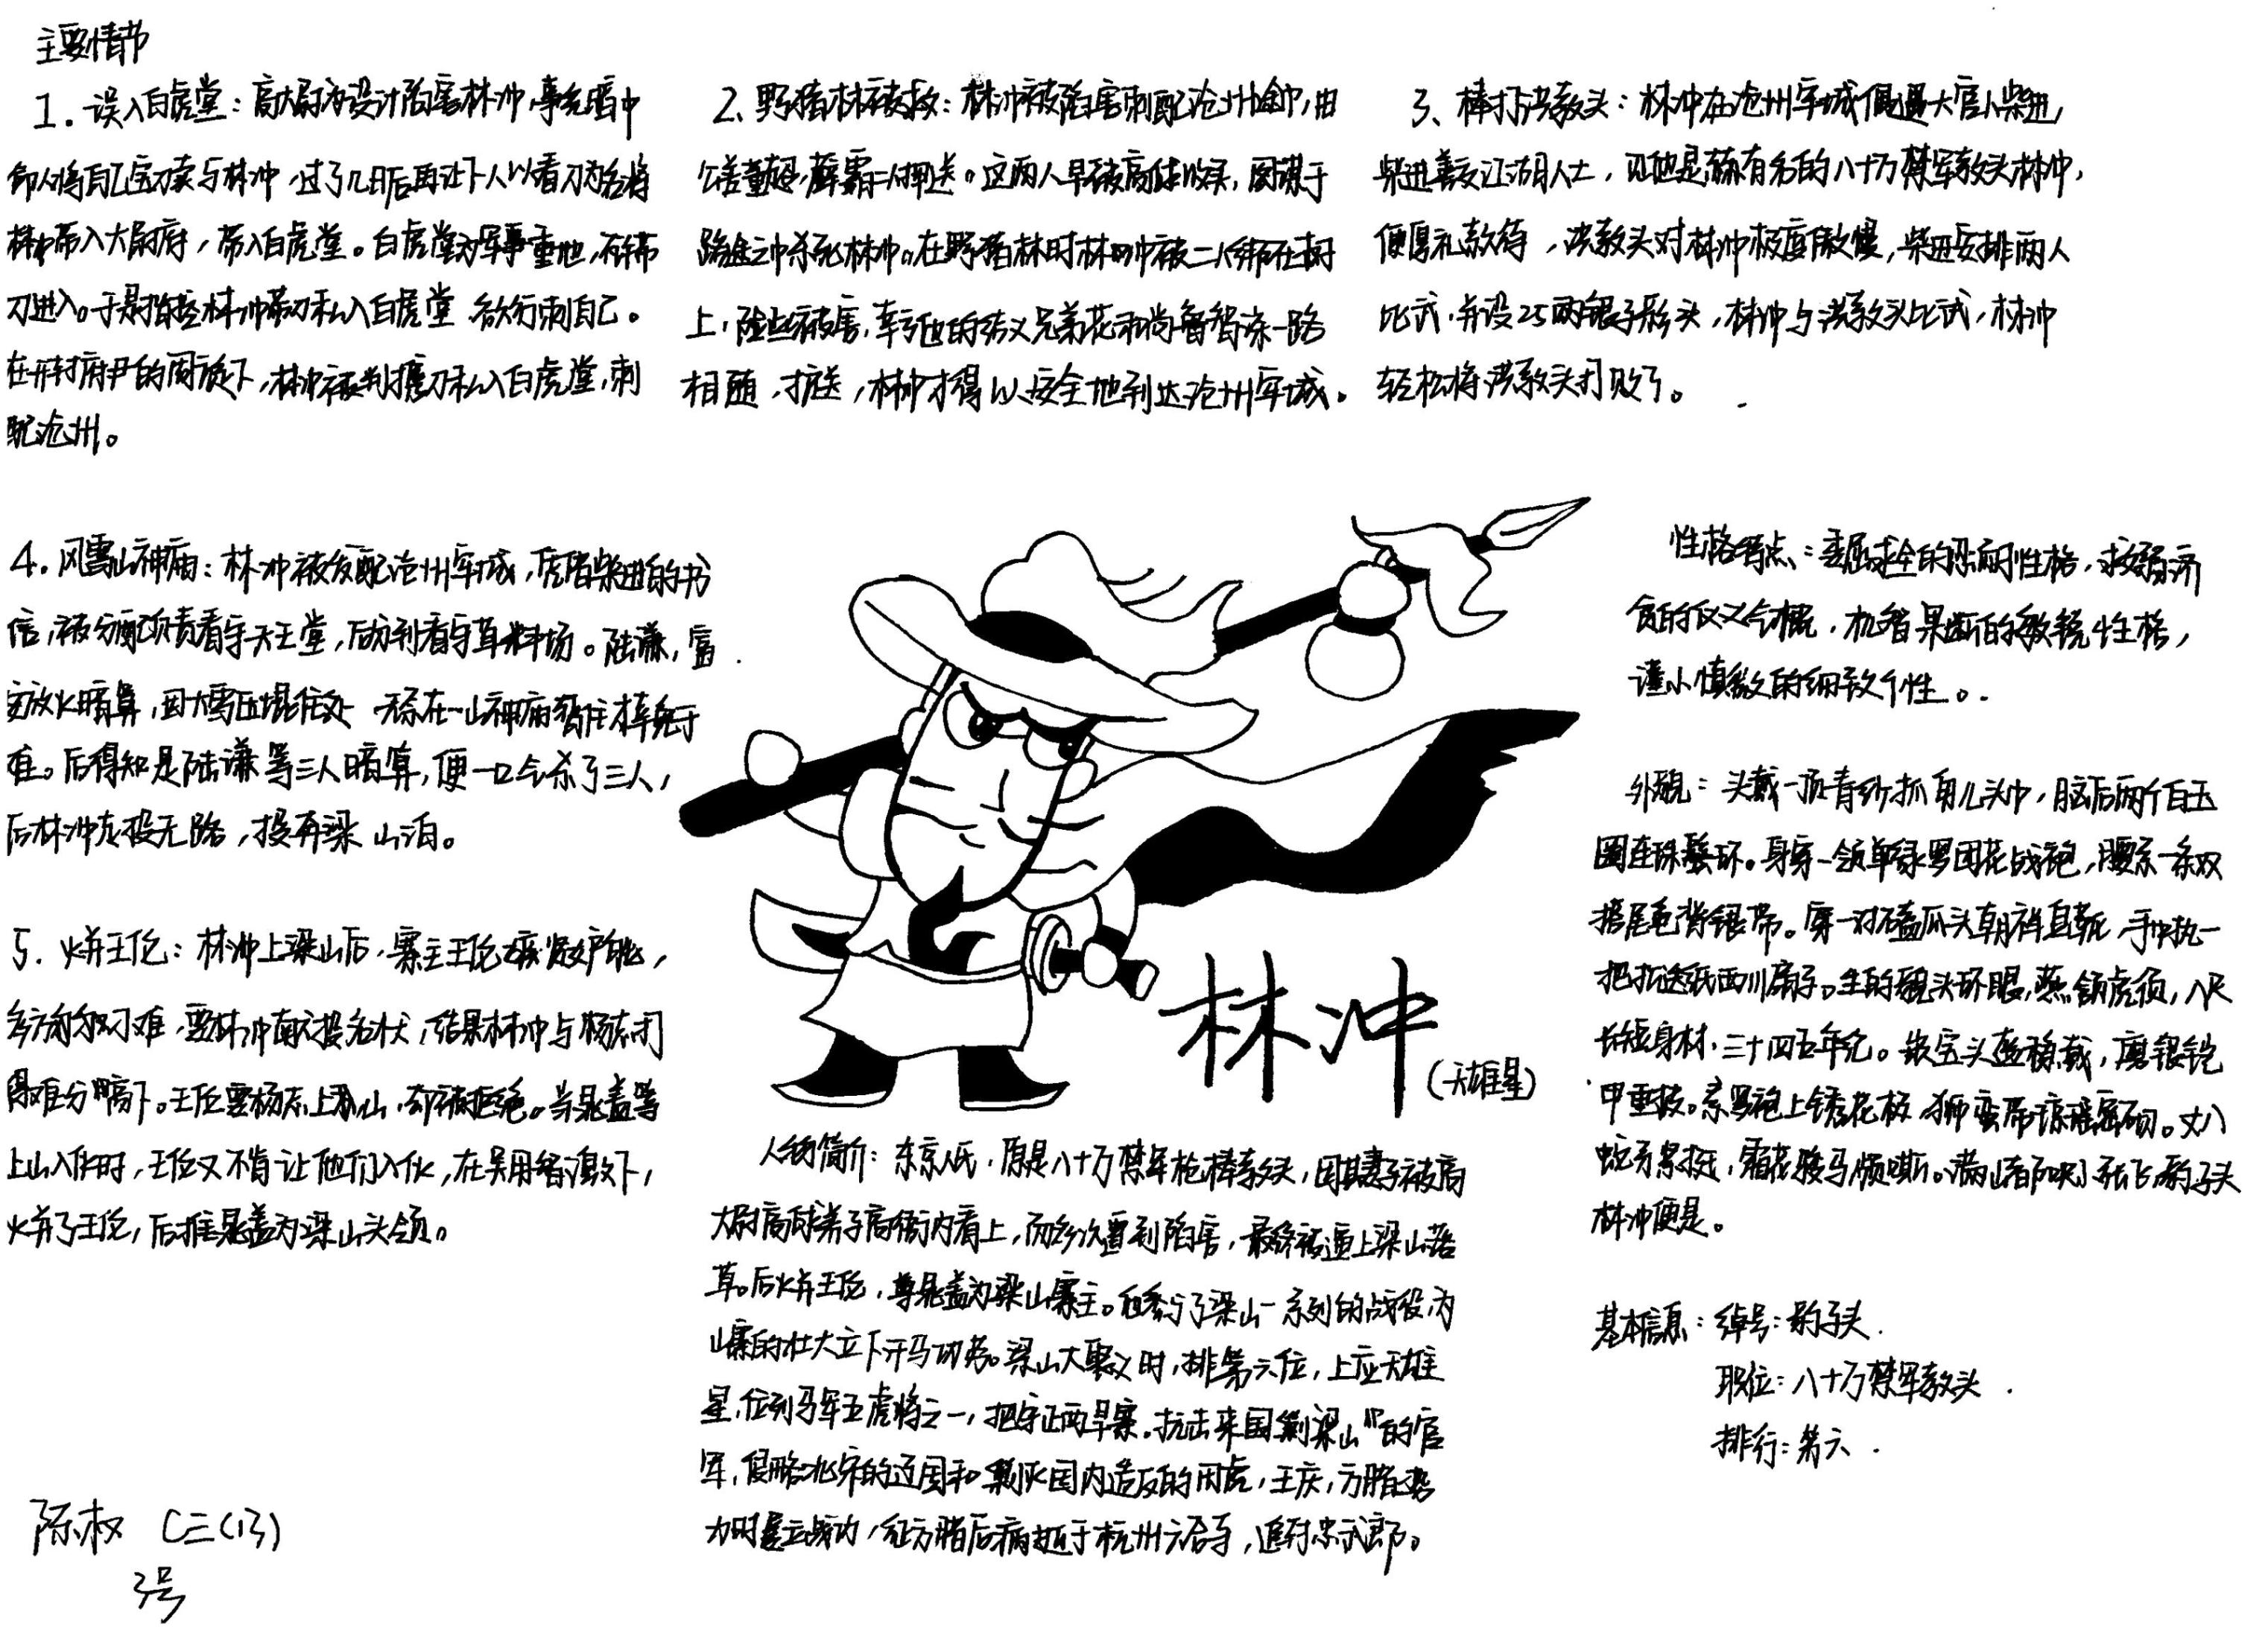 主要情节
1. 误入白虎堂：高太尉为设计陷害林冲，事先暗中
命人将自己宝刀卖与林冲，过了几日后再让下人以看刀为名将
林冲带入太尉府，带入白虎堂。白虎堂为军事重地，不许带
刀进入。于是指控林冲带刀私入白虎堂 欲行刺自己。
在开封府尹的周旋下，林冲被判携刀私入白虎堂，刺
配沧州。
2、野猪林被救：林冲被陷害刺配沧州途中，由
公差董超，薛霸二人押送。这两人早被高俅收买，图谋于
路途之中杀死林冲。在野猪林时林冲被二人绑在树
上，险些被害，幸亏他的结义兄弟花和尚鲁智深一路
相随，护送，林冲才得以安全地到达沧州军城。
3、棒打洪教头：林冲在沧州军城偶遇大官人柴进，
柴进喜交江湖人士，见他是赫有名的八十万禁军教头林冲，
便厚礼款待，洪教头对林冲极度傲慢，柴进安排两人
比武，并设25两银子彩头，林冲与洪教头比武，林冲
轻松将洪教头打败了。
4. 风雪山神庙：林冲被发配沧州军城，凭借柴进的书
信，被分配负责看守天王堂，后分到看守草料场。陆谦，富
安放火暗算，因大雪压塌住处 在一山神庙暂住才幸免于
难。后得知是陆谦等三人暗算，便一口气杀了三人，
后林冲走投无路，投奔梁山泊。
5. 火并王伦：林冲上梁山后，寨主王伦嫉贤妒能，
多方刁难，要林冲献投名状，结果林冲与杨志打
得难分高下。王伦要杨志上梁山，却被拒绝。当晁盖等
上山入伙时，王伦又不肯让他们入伙，在吴用智激下，
火并了王伦，后推晁盖为梁山头领。
性格特点：委屈求全的忍耐性格，救弱济
贫的仗义气概，机智果断的敏锐性格，
谨小慎微的细致个性。
外貌：头戴一顶青纱抓角儿头巾，脑后两个白玉
圈连珠鬓环。身穿一领单绿罗团花战袍，腰系一条双
搭尾龟背银带。穿一对磕瓜头朝样皂靴，手中执一
把折迭纸西川扇子。生的豹头环眼，燕颔虎须，八尺
长短身材，三十四五年纪。嵌宝头盔稳戴，磨银铠
甲重披。素罗袍上绣花枝，狮蛮带琼瑶密砌。丈八
蛇矛紧挺，霜花骏马频嘶。满山都唤小张飞，豹子头
林冲便是。
林冲
(天雄星)
人物简介：东京人氏，原是八十万禁军枪棒教头，因其妻子被高
太尉高俅养子高衙内看上，而多次遭到陷害，最终被逼上梁山落
草。后火并王伦，尊晁盖为梁山寨主。他参与了梁山一系列的战役，为
山寨的壮大立下汗马功劳。梁山大聚义时，排第六位，上应天雄
星，位列马军五虎将之一，把守正西旱寨。抗击来围剿梁山的官
军，侵略北宋的辽国和剿灭国内造反的田虎，王庆，方腊
力时屡立战功，征方腊后病逝于杭州六合寺，追封忠武郎。
基本信息：绰号：豹子头．
职位：八十万禁军教头．
排行：第六．
陈权 C三(13)
3号